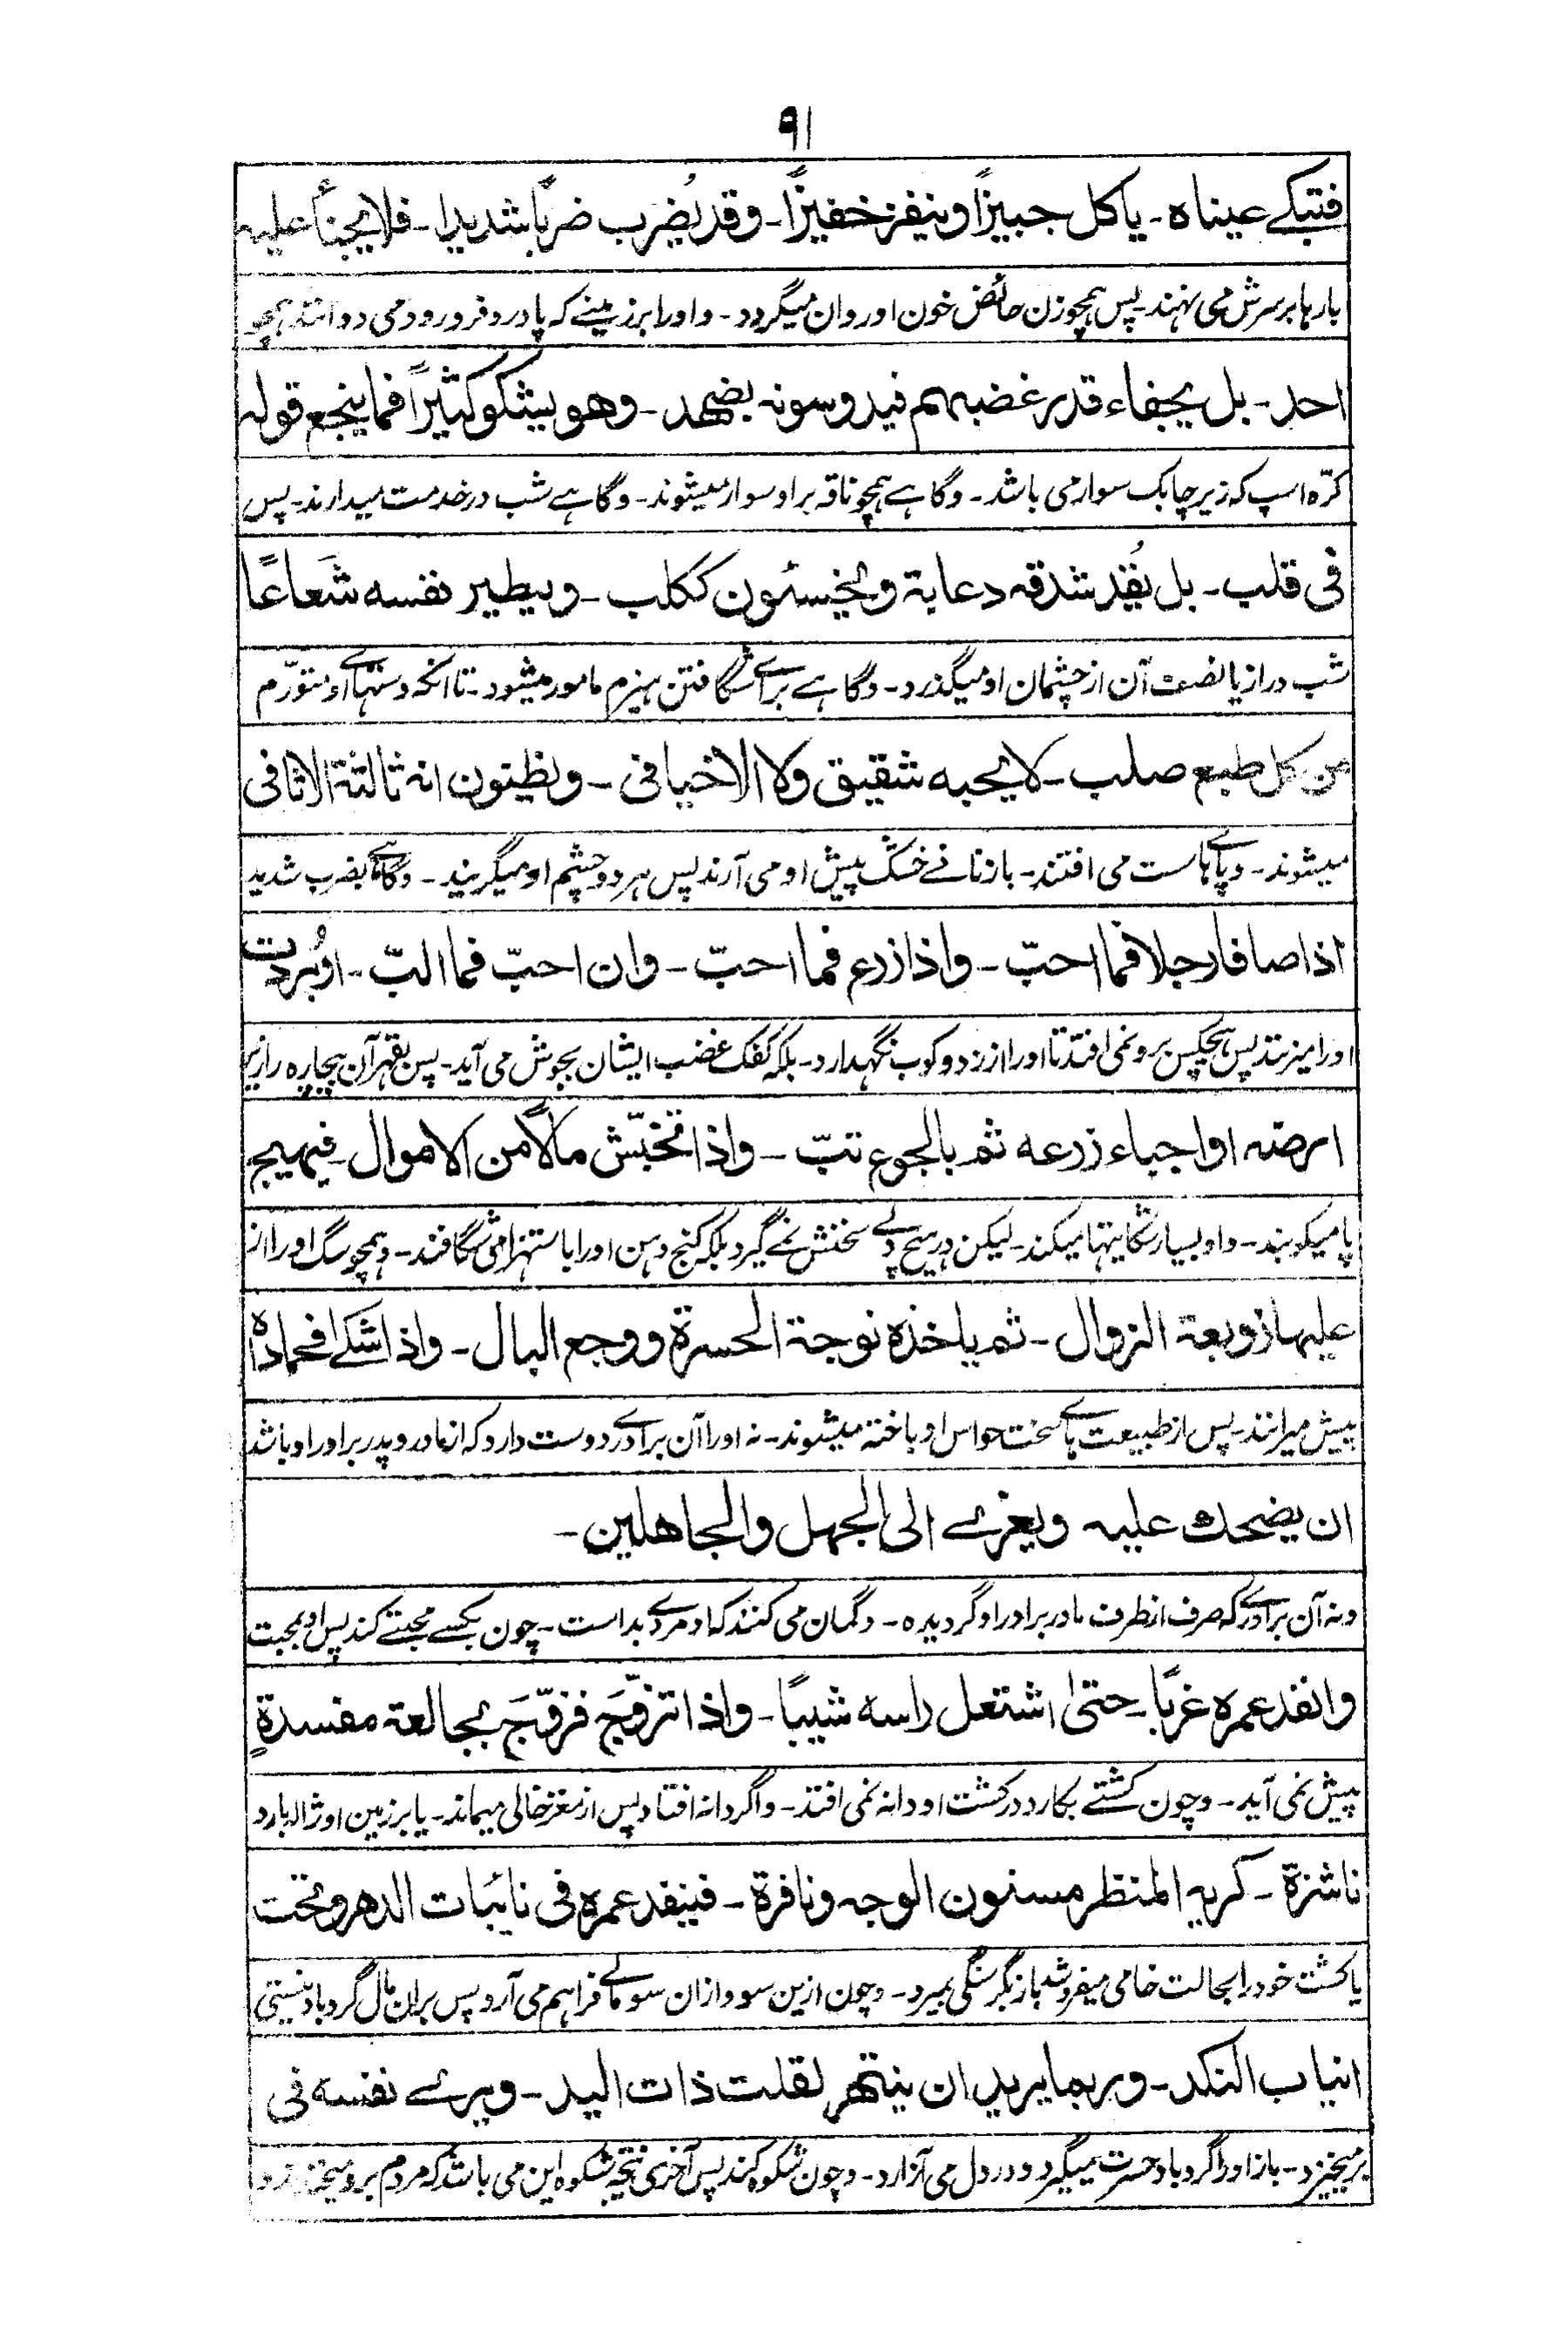 ۹۱
فتبکے عیناہ ۔ یاکل جبیزًا وینفز خفیزًا ۔ وقد یُضرب ضربًا شدیدا ۔ فلا یجنأُ علیہ
بارہا بر سرش می نہند ۔ پس ہمچو زن حائض خون او روان میگردد ۔ و اورا بر زمینے کہ پا درو فرو رود می دوانند ہمچو
احد ۔ بل یجفاء قدر غضبہم فیدوسونہ بضہد ۔ وھو یشکو کثیرًا فما ینجع قولہ
کرّہ اسپ کہ زیر چابک سوار می باشد ۔ و گاہے ہمچو ناقہ بر او سوار میشوند ۔ و گاہے شب در خدمت میدارند ۔ پس
فی قلب ۔ بل یُقذ شدقہ دعابة ویخسئون ککلب ۔ ویطیر نفسہ شَعاعًا
شب دراز یا نصف آن از چشمان او میگذرد ۔ و گاہے برائے شگافتن ہیزم مامور میشود ۔ تا انکہ دستہائے او متورّم
من کل طبع صلب ۔ لا یحبہ شقیق ولا الاخیافی ۔ ویظنون انہ ثالثة الاثافی
میشوند ۔ و پاے ہا سست می افتند ۔ باز نانے خشک پیش او می آرند پس ہر دو چشم او میگریند ۔ و گاہے بضرب شدید
اذا صافا رجلا فما احبّ ۔ واذا زرع فما احبّ ۔ وان احبّ فما البّ ۔ او بُردت
اورا میزنند پس ہیچکس برو نمی افتد تا اورا از زد و کوب نگہدارد ۔ بلکہ کفک غضب ایشان بجوش می آید ۔ پس بقہر آن بیچارہ را زیر
ارضہ او اجباء زرعہ ثم بالجوع تبّ ۔ واذا تخبّش مالًا من الاموال ۔ فیہیج
پا میکوبند ۔ و او بسیار شکایتہا میکند ۔ لیکن در ہیچ دلے سخنش نمے گیرد بلکہ کنج دہن اورا باستہزا می شگافند ۔ و ہمچو سگ اورا از
علیہا زوبعة الزوال ۔ ثم یاخذہ نوجة الحسرة ووجع البال ۔ واذا شکے فحماداہ
پیش میرانند ۔ پس از طبیعت ہائے سخت حواس او باختہ میشوند ۔ نہ اورا آن برادرے دوست دارد کہ از مادر و پدر برادر او باشد
ان یضحک علیہ ویعزے الی الجہل والجاھلین ۔
ونہ آن برادرے کہ صرف از طرف مادر برادر او گردیدہ ۔ و گمان می کنند کہ او مردے بد است ۔ چون بکسے محبتے کند پس او بمحبت
وانفد عمرہ غربًا ۔ حتیٰ اشتعل راسہ شیبًا ۔ واذا تزوّجَ فزوّجَ بجالعة مفسدةٍ
پیش نمی آید ۔ و چون کشتے بکارد در کشت او دانہ نمی افتد ۔ و اگر دانہ افتاد پس از مغز خالی میماند ۔ یا بر زمین او ژالہ بارد
ناشزة ۔ کریہ المنظر مسنون الوجہ ونافرة ۔ فینفد عمرہ فی نائبات الدھر وتحت
یا کشت خود را بحالت خامی میفروشد باز بگرسنگی بمیرد ۔ و چون ازین سو و ازان سو مالے فراہم می آرد پس بران مال گردباد نیستی
انیاب النکد ۔ وربما یرید ان ینتحر لقلت ذات الید ۔ ویرے نفسہ فی
برمیخیزد ۔ باز اورا گردباد حسرت میگیرد و درد دل می آزارد ۔ و چون شکوہ کند پس آخری نتیجہ شکوہ این می باشد کہ مردم برو میخندند و